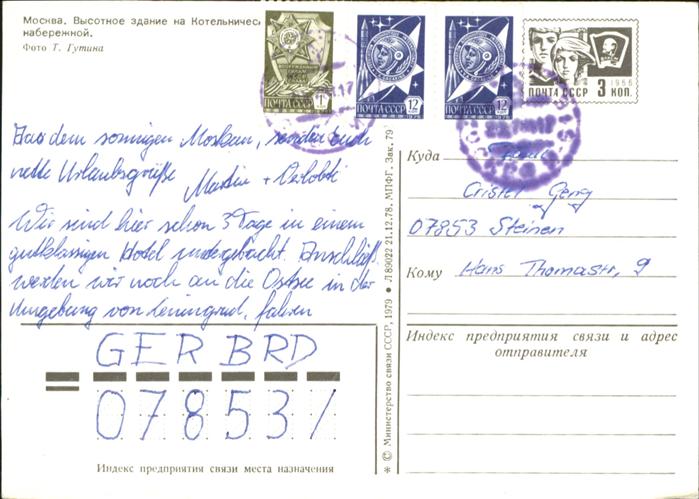 Москва. Высотное здание на Котельничес
набережной.
Фото Т. Гутина
ПОЧТА СССР 1
ПОЧТА СССР 12
ПОЧТА СССР 12
1966
ПОЧТА СССР 3 КОП.
Aus dem sonnigen Moskau, senden euch
nette Urlaubsgrüße
Martin +
Wir sind hier schon 3 Tage in einem
gutklassigen Hotel untergebracht. Anschließ.
werden wir noch an die Ostsee in der
Umgebung von Leningrad, fahren
GER BRD
078531
Индекс предприятия связи места назначения
* © Министерство связи СССР, 1979 ● Л 89022 21.12.78. МПФГ. Зак. 79
Куда
Cristel Georg
07853 Steinen
Кому Hans Thomastr, 9
Индекс предприятия связи и адрес
отправителя